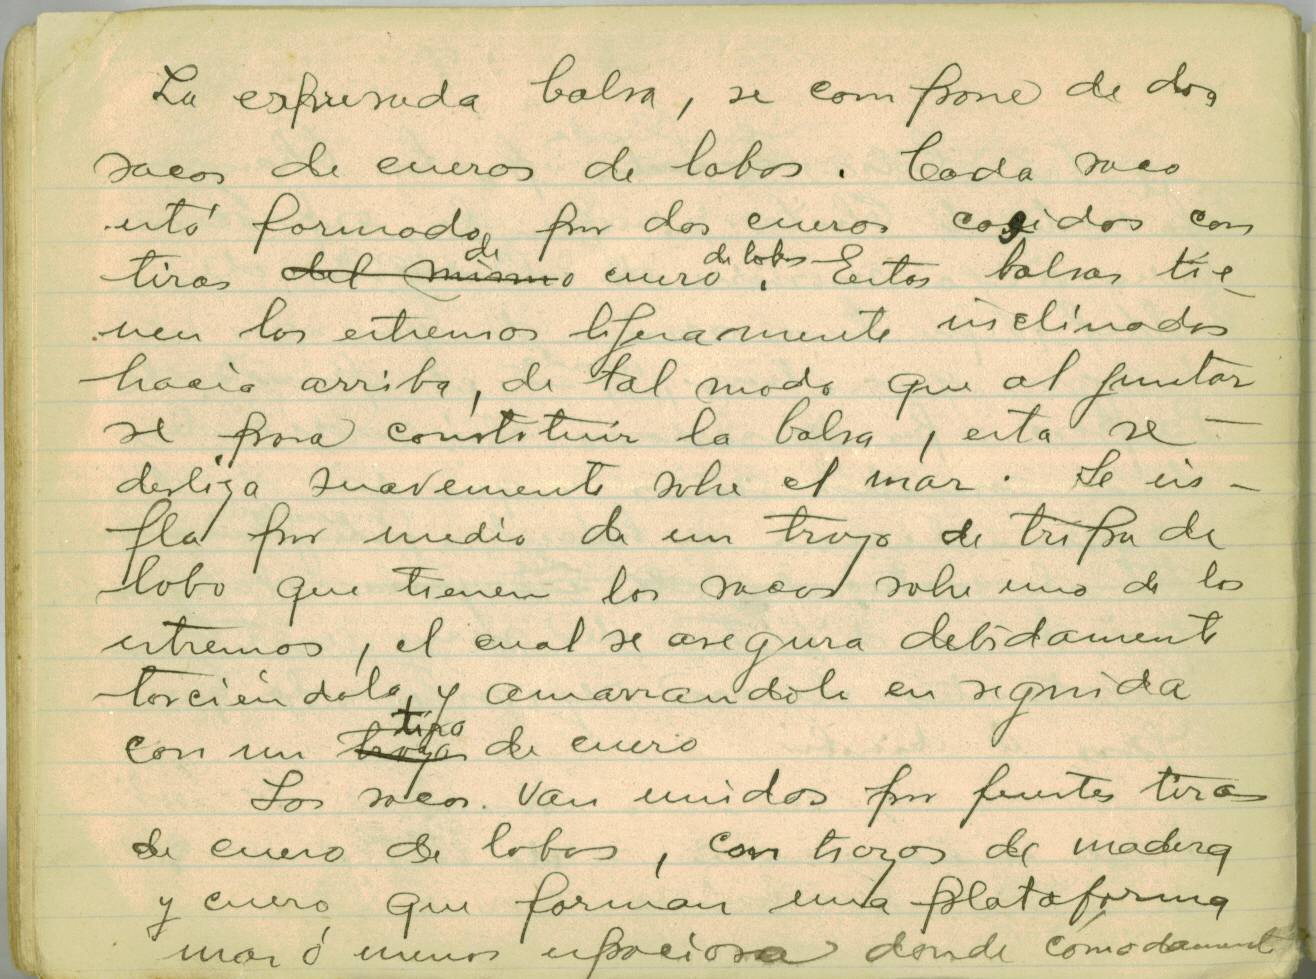 La espresada balsa, se compone de dos
sacos de cueros de lobos. Cada saco
está formado por dos cueros cosidos con
tiras del mismo de cuero de lobos. Estas balsas tie-
nen los estremos lijeramente inclinados
hacia arriba, de tal modo que al juntar
se para constituir la balsa, esta se
desliza suavemente sobre el mar. Se in-
fla por medio de un trozo de tripa de
lobo que tienen los sacos sobre uno de los
estremos, el cual se asegura debidamente
torciéndola y amarrandole en seguida
con un trozo tira de cuero
Los sacos van unidos por fuertes tiras
de cuero de lobos, con trozos de madera
y cuero que forman una plataforma
mas ó menos espaciosa donde cómodamente